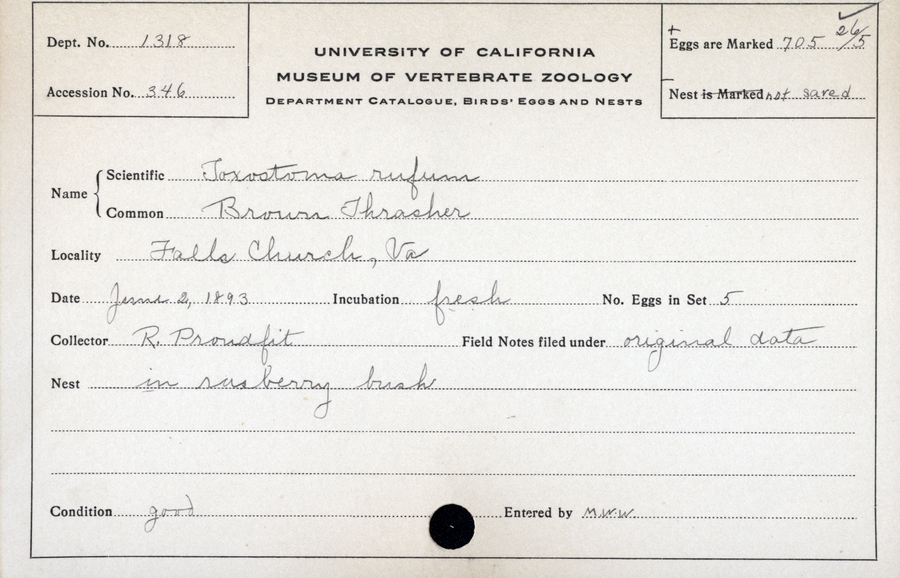 Dept. No. 1318
Accession No. 346
UNIVERSITY OF CALIFORNIA
MUSEUM OF VERTEBRATE ZOOLOGY
DEPARTMENT CATALOGUE, BIRDS' EGGS AND NESTS
+ Eggs are Marked 705 26/5
Nest is Marked not saved
Name
Scientific Toxostoma rufum
Common Brown Thrasher
Locality Falls Church, Va
Date June 2, 1893 Incubation fresh No. Eggs in Set 5
Collector R. Proudfit Field Notes filed under original data
Nest in rasberry bush
Condition good Entered by M.W.W.